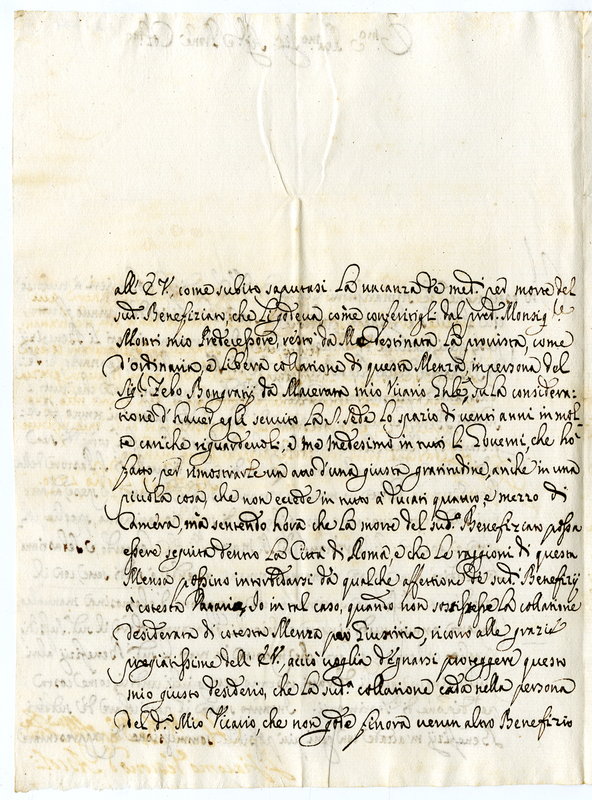 all' E.V., come subito saputasi la vacanza de med.i per morte del
sud.o Beneficiato, che li godeva come conferitigli dal pred.o Monsig.re
Monti mio Predecessore, restò da Me destinata la provista, come
d'ordinaria, e libera collatione di questa Mensa, in persona del
Sig.r Zeno Bongravij da Macerata mio Vicario Gnle, su la considera-
tione d'haver egli servito la S. Sede lo spazio di venti anni in mol-
te cariche riguardevoli, e me medesimo in tutti li Governi, che hò
fatto per rimostrarle un atto d'una giusta gratitudine, anche in una
piccola cosa, che non eccede in tutto à ducati quattro, e mezzo di
Camera, mà sentendo hora che la morte del sud.o Beneficiato possa
essere seguita dentro la Città di Roma, e che le raggioni di questa
Mensa possino intorbidarsi da qualche affettione de sud.i Beneficij
à cotesta Dataria, Io in tal caso, quando non sossistesse la collatione
desiderata di cotesta Mensa per Giustitia, ricorro alle grazie
pregiatissime dell' E.V., acciò voglia degnarsi proteggere questo
mio giusto desiderio, che la sud.a collatione cada nella persona
del d.o Mio Vicario, che non gode finora verun altro Beneficio